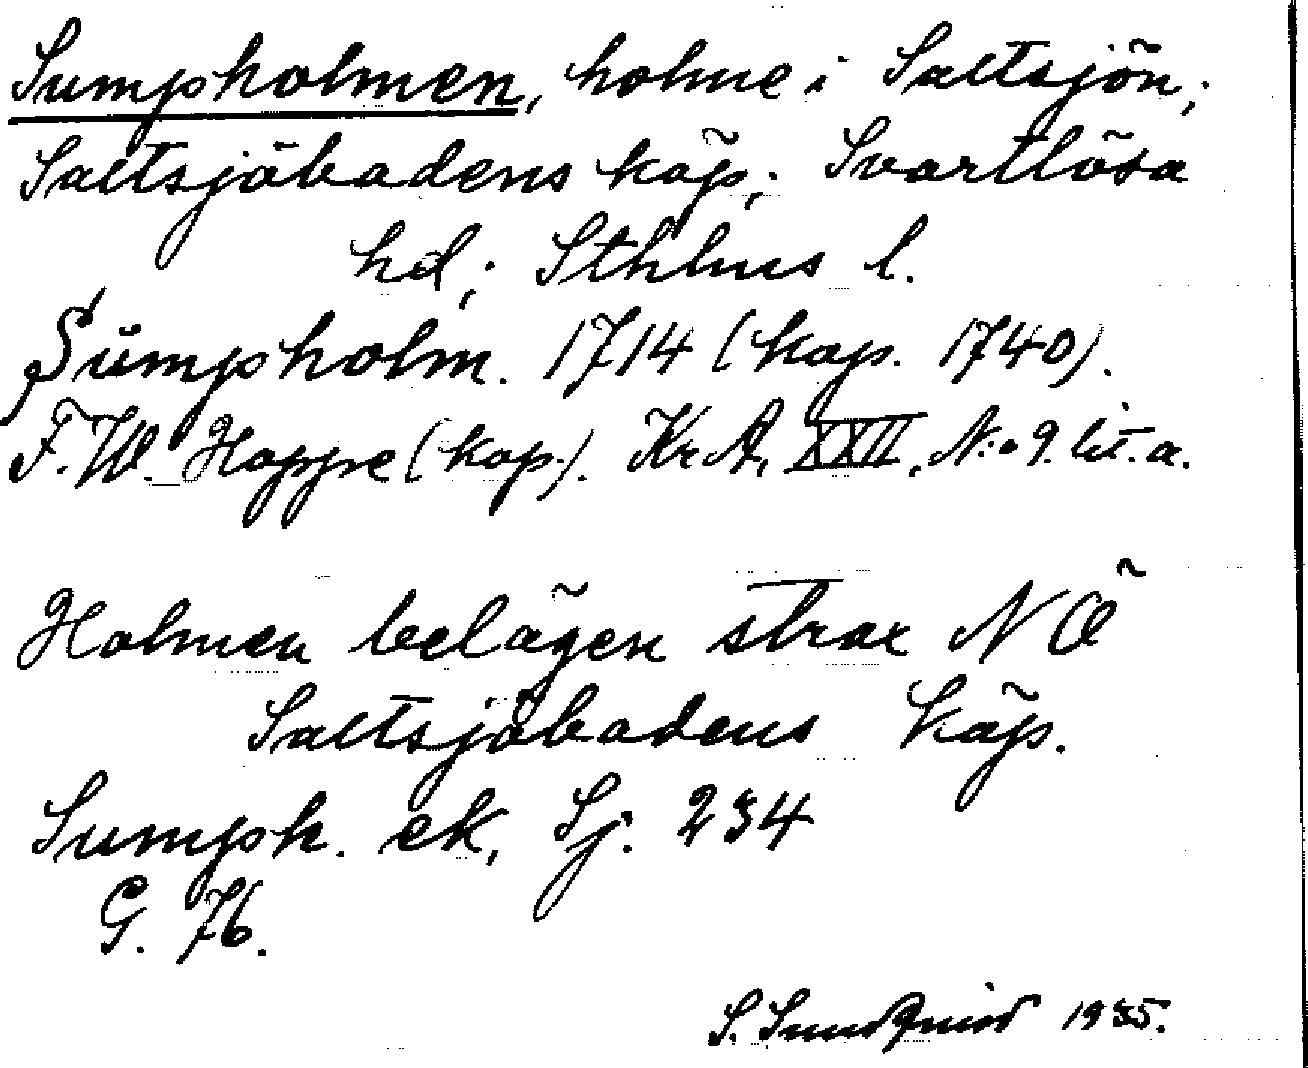 Sumpholmen, holme i Saltsjön;
Saltsjöbadens köp; Svartlösa
hd; Sthlms l.
Sŭmpholm. 1714 (kop. 1740).
F. W. Hoppe (kop.). Kr A, XXII, N:o 9. lit. a.
Holmen belägen strax NÖ
Saltsjöbadens köp.
Sumph. ek, Sj. 234
G. 76.
S. Sundquist 1935.